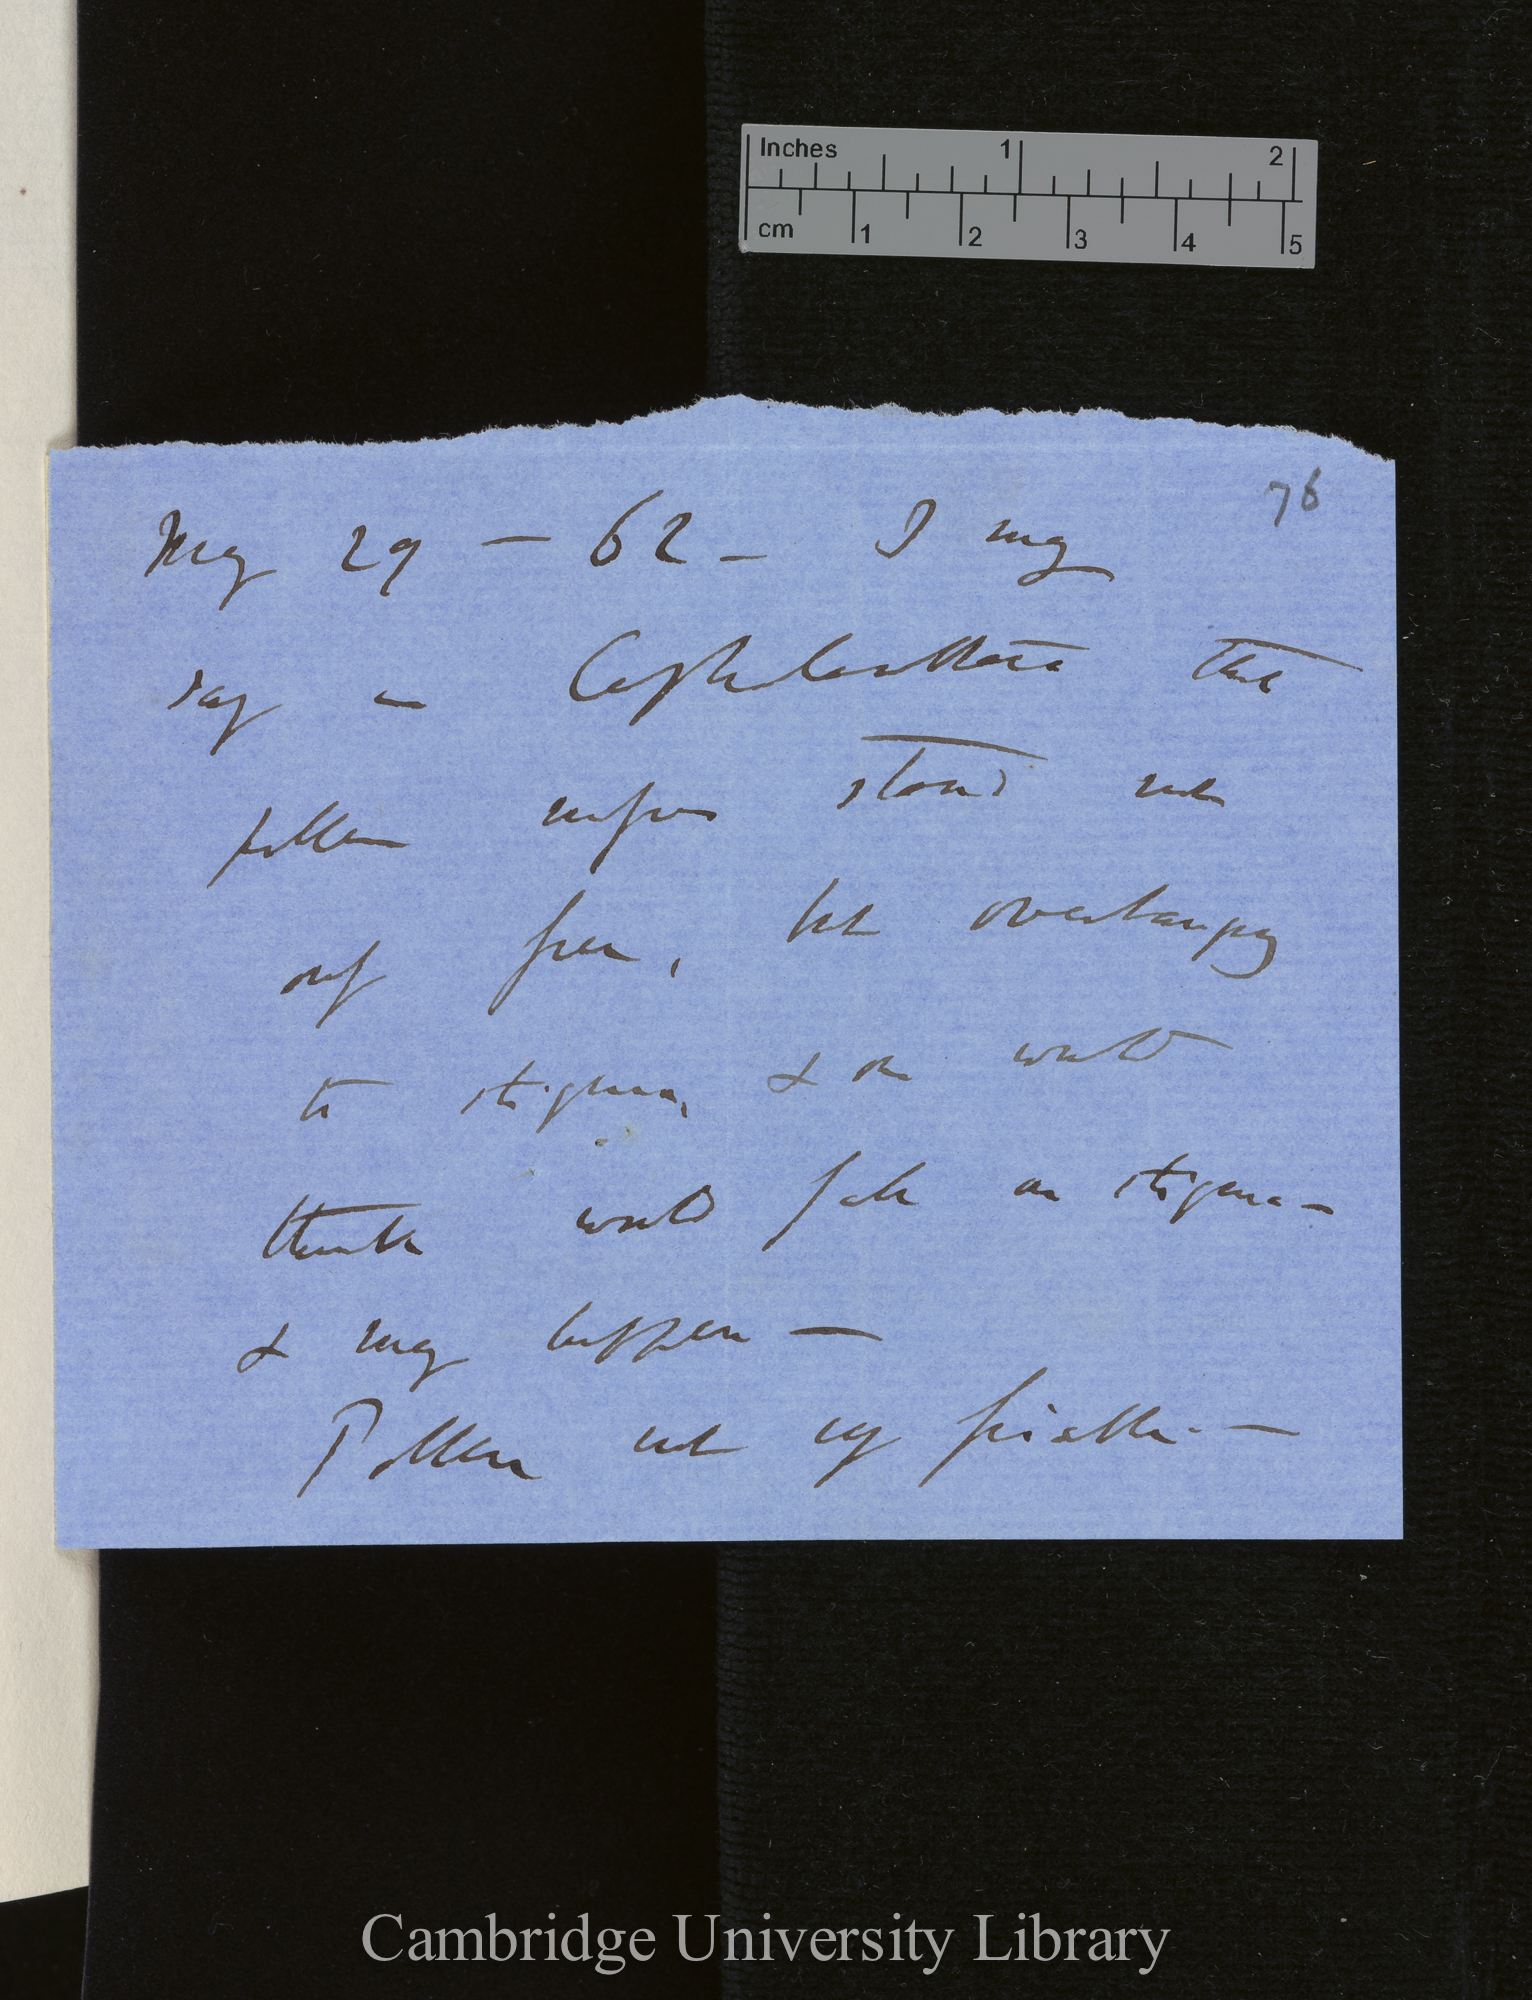 Inches 1 2
cm 1 2 3 4 5
76
May 29 — 62 — I may
say in Cephalanthera that
pollen masses stand not
only free, but overhanging
to stigma, & one would
think would fall on stigma —
& may happen —
Pollen not very friable. —
Cambridge University Library